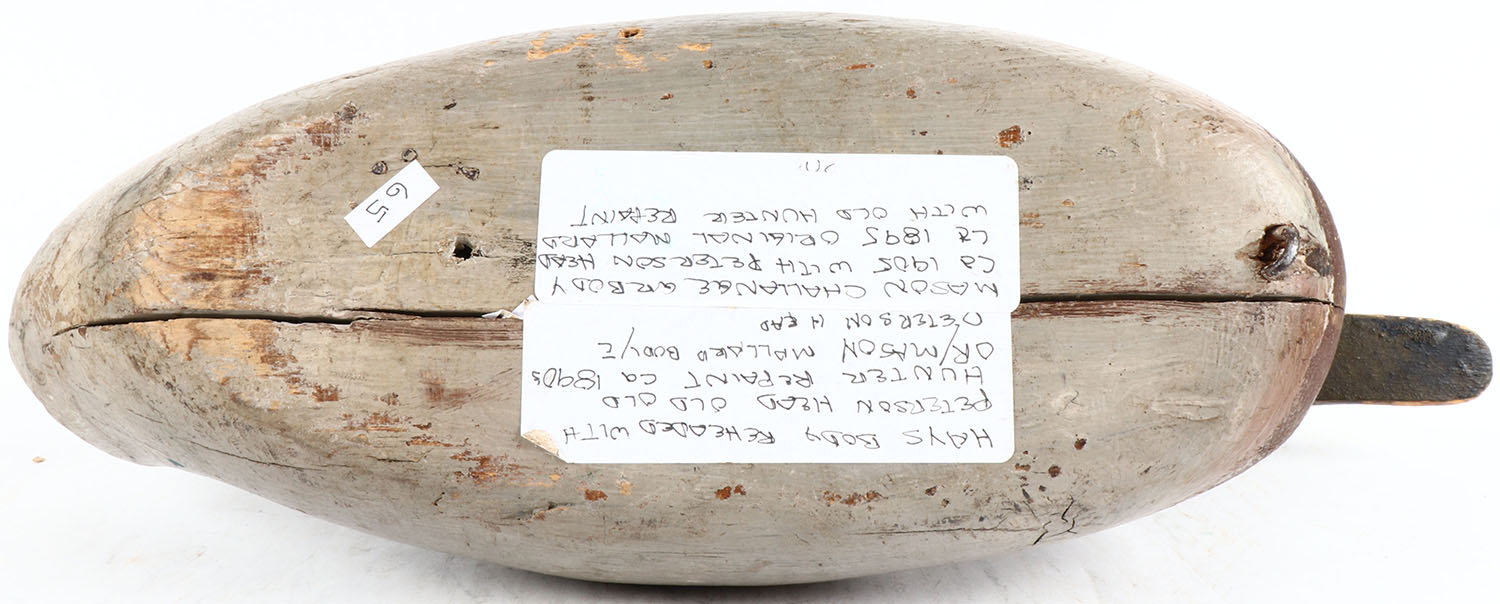 HAYS BODY REHEADED WITH
PETERSON HEAD OLD OLD
HUNTER REPAINT CA 1890s
OR/MASON MALLARD BODY/
PETERSON HEAD
MASON CHALLANGE GR BODY
CA 1905 WITH PETERSON HEAD
CA 1895 ORIGINAL MALLARD
WITH OLD HUNTER REPAINT
65